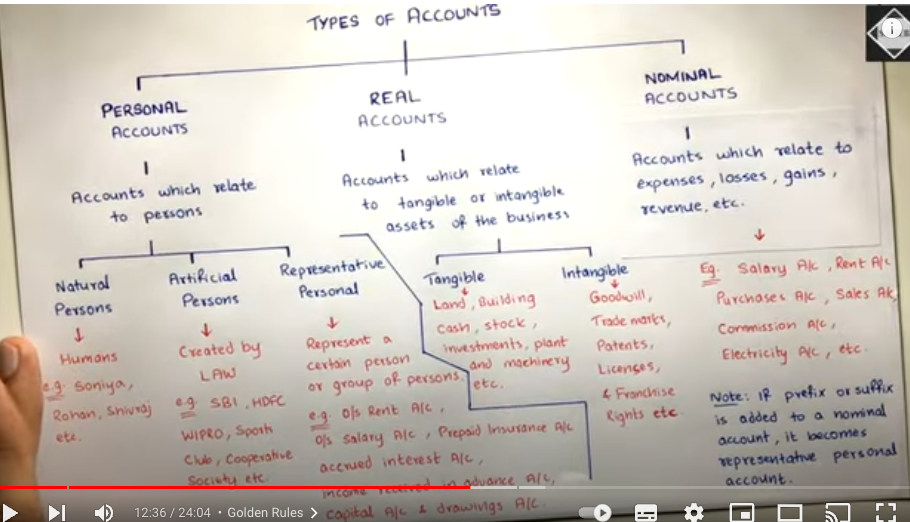 TYPES OF ACCOUNTS
PERSONAL
ACCOUNTS
Accounts which relate
to persons
Natural
Persons
Humans
e.g: Soniya,
Rohan, Shivraj
etc.
Artificial
Persons
Created by
LAW
e.g: SBI, HDFC
WIPRO, Sports
Club, Cooperative
Society etc.
Representative
Personal
Represent a
certain person
or group of persons.
e.g: O/s Rent A/c,
O/s Salary A/c, Prepaid Insurance A/c
accrued interest A/c,
income received in advance A/c,
capital A/c & drawings A/c.
REAL
ACCOUNTS
Accounts which relate
to tangible or intangible
assets of the business
Tangible
Land, Building
cash, stock,
investments, plant
and machinery
etc.
Intangible
Goodwill,
Trade marks,
Patents,
Licenses,
& Franchise
Rights etc.
NOMINAL
ACCOUNTS
Accounts which relate to
expenses, losses, gains,
revenue, etc.
Eg. Salary A/c, Rent A/c
Purchases A/c, Sales A/c,
Commission A/c,
Electricity A/c, etc.
Note: If prefix or suffix
is added to a nominal
account, it becomes
representative personal
account.
12:36 / 24:04 • Golden Rules >